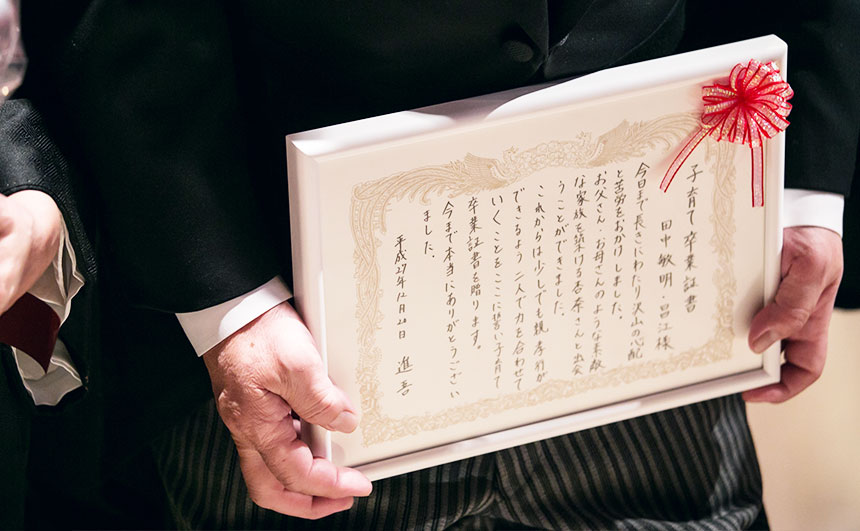 子育て卒業証書
田中敏明・昌江様
今日まで長きにわたり沢山の心配
と苦労をおかけしました。
お父さん・お母さんのような素敵
な家族を築ける杏奈さんと出会
うことができました。
これからは少しでも親孝行が
できるよう二人で力を合わせて
いくことをここに誓い子育て
卒業証書を贈ります。
今まで本当にありがとうござい
ました。
平成27年12月20日
進吾